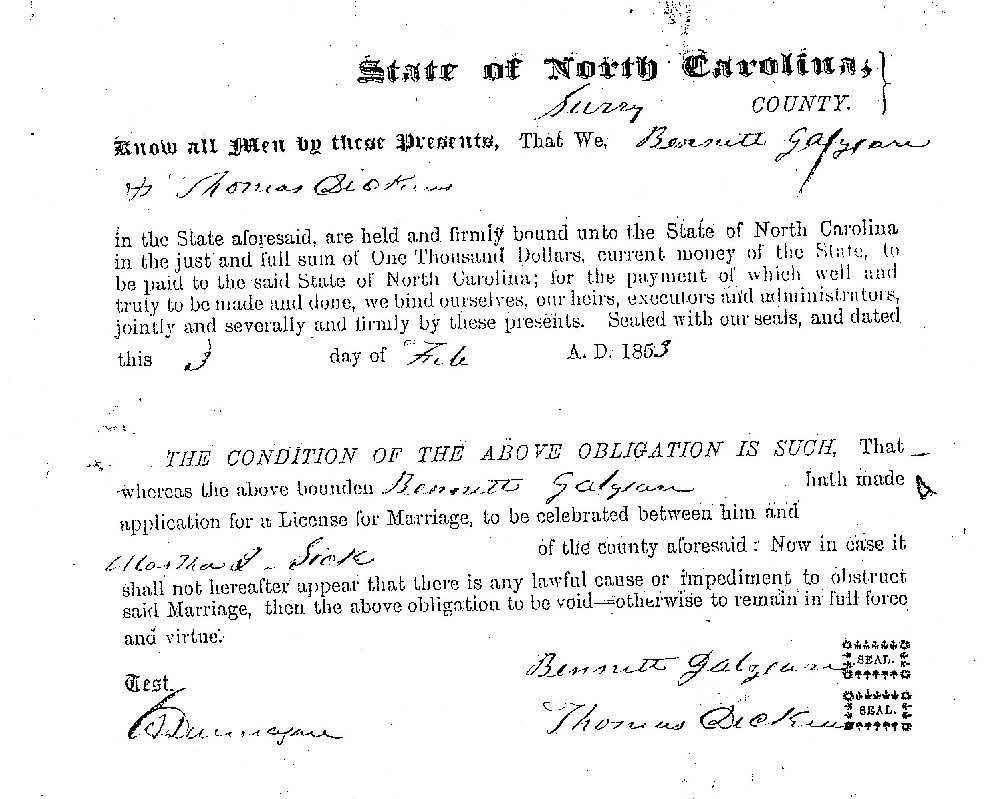 State of North Carolina,
Surry COUNTY.
Know all Men by these Presents, That We, Bennett Galyean
& Thomas Dickens
in the State aforesaid, are held and firmly bound unto the State of North Carolina
in the just and full sum of One Thousand Dollars, current money of the State, to
be paid to the said State of North Carolina; for the payment of which well and
truly to be made and done, we bind ourselves, our heirs, executors and administrators,
jointly and severally and firmly by these presents. Sealed with our seals, and dated
this 3 day of Feb A. D. 1853
THE CONDITION OF THE ABOVE OBLIGATION IS SUCH, That
whereas the above bounden Bennett Galyean hath made
application for a License for Marriage, to be celebrated between him and
Martha of the county aforesaid: Now in case it
shall not hereafter appear that there is any lawful cause or impediment to obstruct
said Marriage, then the above obligation to be void—otherwise to remain in full force
and virtue.
Bennett Galyean SEAL.
Test.
Thomas Dickens SEAL.